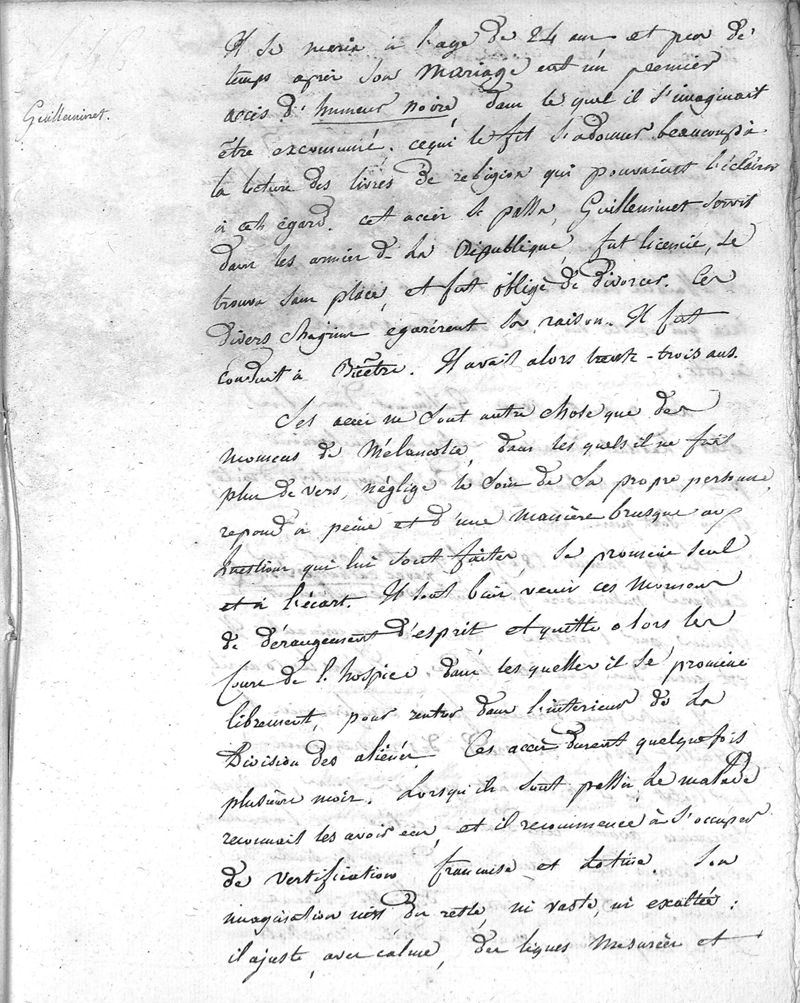 Guilleminet.
Il se maria à l'age de 24 ans et peu de
temps après son mariage eut un premier
accès d'humeur noire dans le quel il s'imaginait
être excomunié. ce qui le fit s'adonner beaucoup à
la lecture des livres de religion qui pouvaient l'éclairer
à cet égard. cet accès se passa, Guilleminet servit
dans les armées de la République, fut licencié, se
trouva sans place, et fut obligé de divorcer. Ces
divers chagrins égarèrent sa raison. Il fut
conduit à Bicêtre. Il avait alors trente-trois ans.
Ses accès ne sont autre chose que des
momens de Mélancolie, dans les quels il ne fait
plus de vers, néglige le soin de sa propre personne,
repond à peine et d'une manière brusque aux
questions qui lui sont faites, se promène seul
et à l'écart. Il sent bien venir ces momens
de dérangement d'esprit et quitte alors les
Cours de l'hospice dans lesquelles il se promène
librement, pour rentrer dans l'interieur de la
Division des aliénés. Ces accès durent quelquefois
plusieurs mois. Lorsqu'ils sont passés, le malade
reconnait les avoir eus, et il recommence à s'occuper
de versification francaise et latine. Son
imagination n'est du reste, ni vaste, ni exaltée:
il ajuste, avec calme, des lignes mesurées et